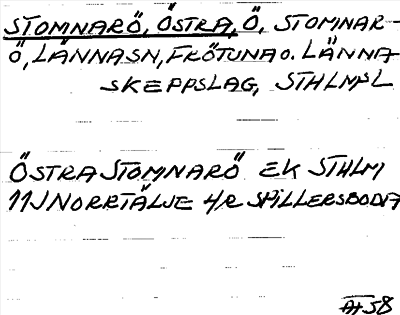 STOMNARÖ, ÖSTRA, Ö, STOMNAR-
Ö, LÄNNASN, FRÖTUNA O. LÄNNA
SKEPPSLAG, STHLMSL
ÖSTRA STOMNARÖ EK STHLM
11J NORRTÄLJE 4/R SPILLERSBODA
58